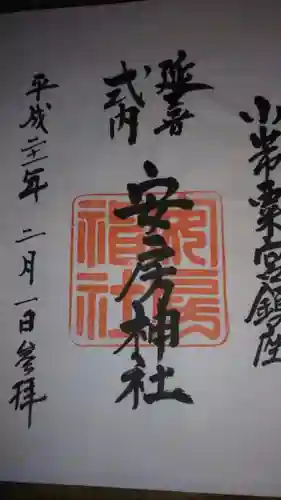 小常粟宮鎮座
延喜
式内
安房神社
平成二十一年二月一日参拝
安房神社